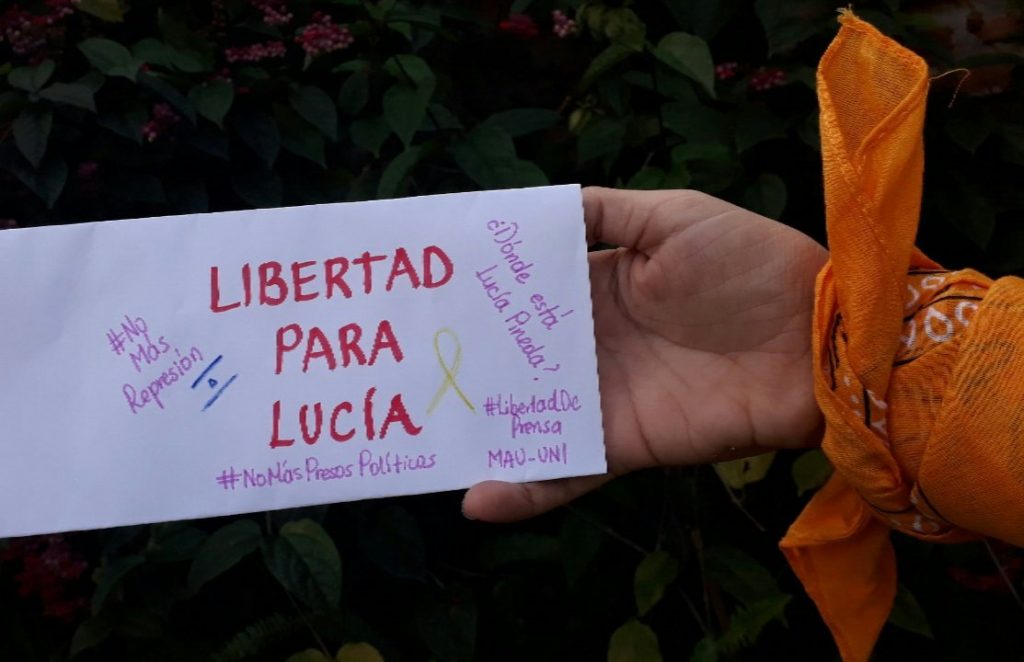 #No
Más
Represión
LIBERTAD
PARA
LUCÍA
#NoMásPresosPolíticos
¿Dónde está
Lucía Pineda?
#LibertadDe
Prensa
MAU-UNI